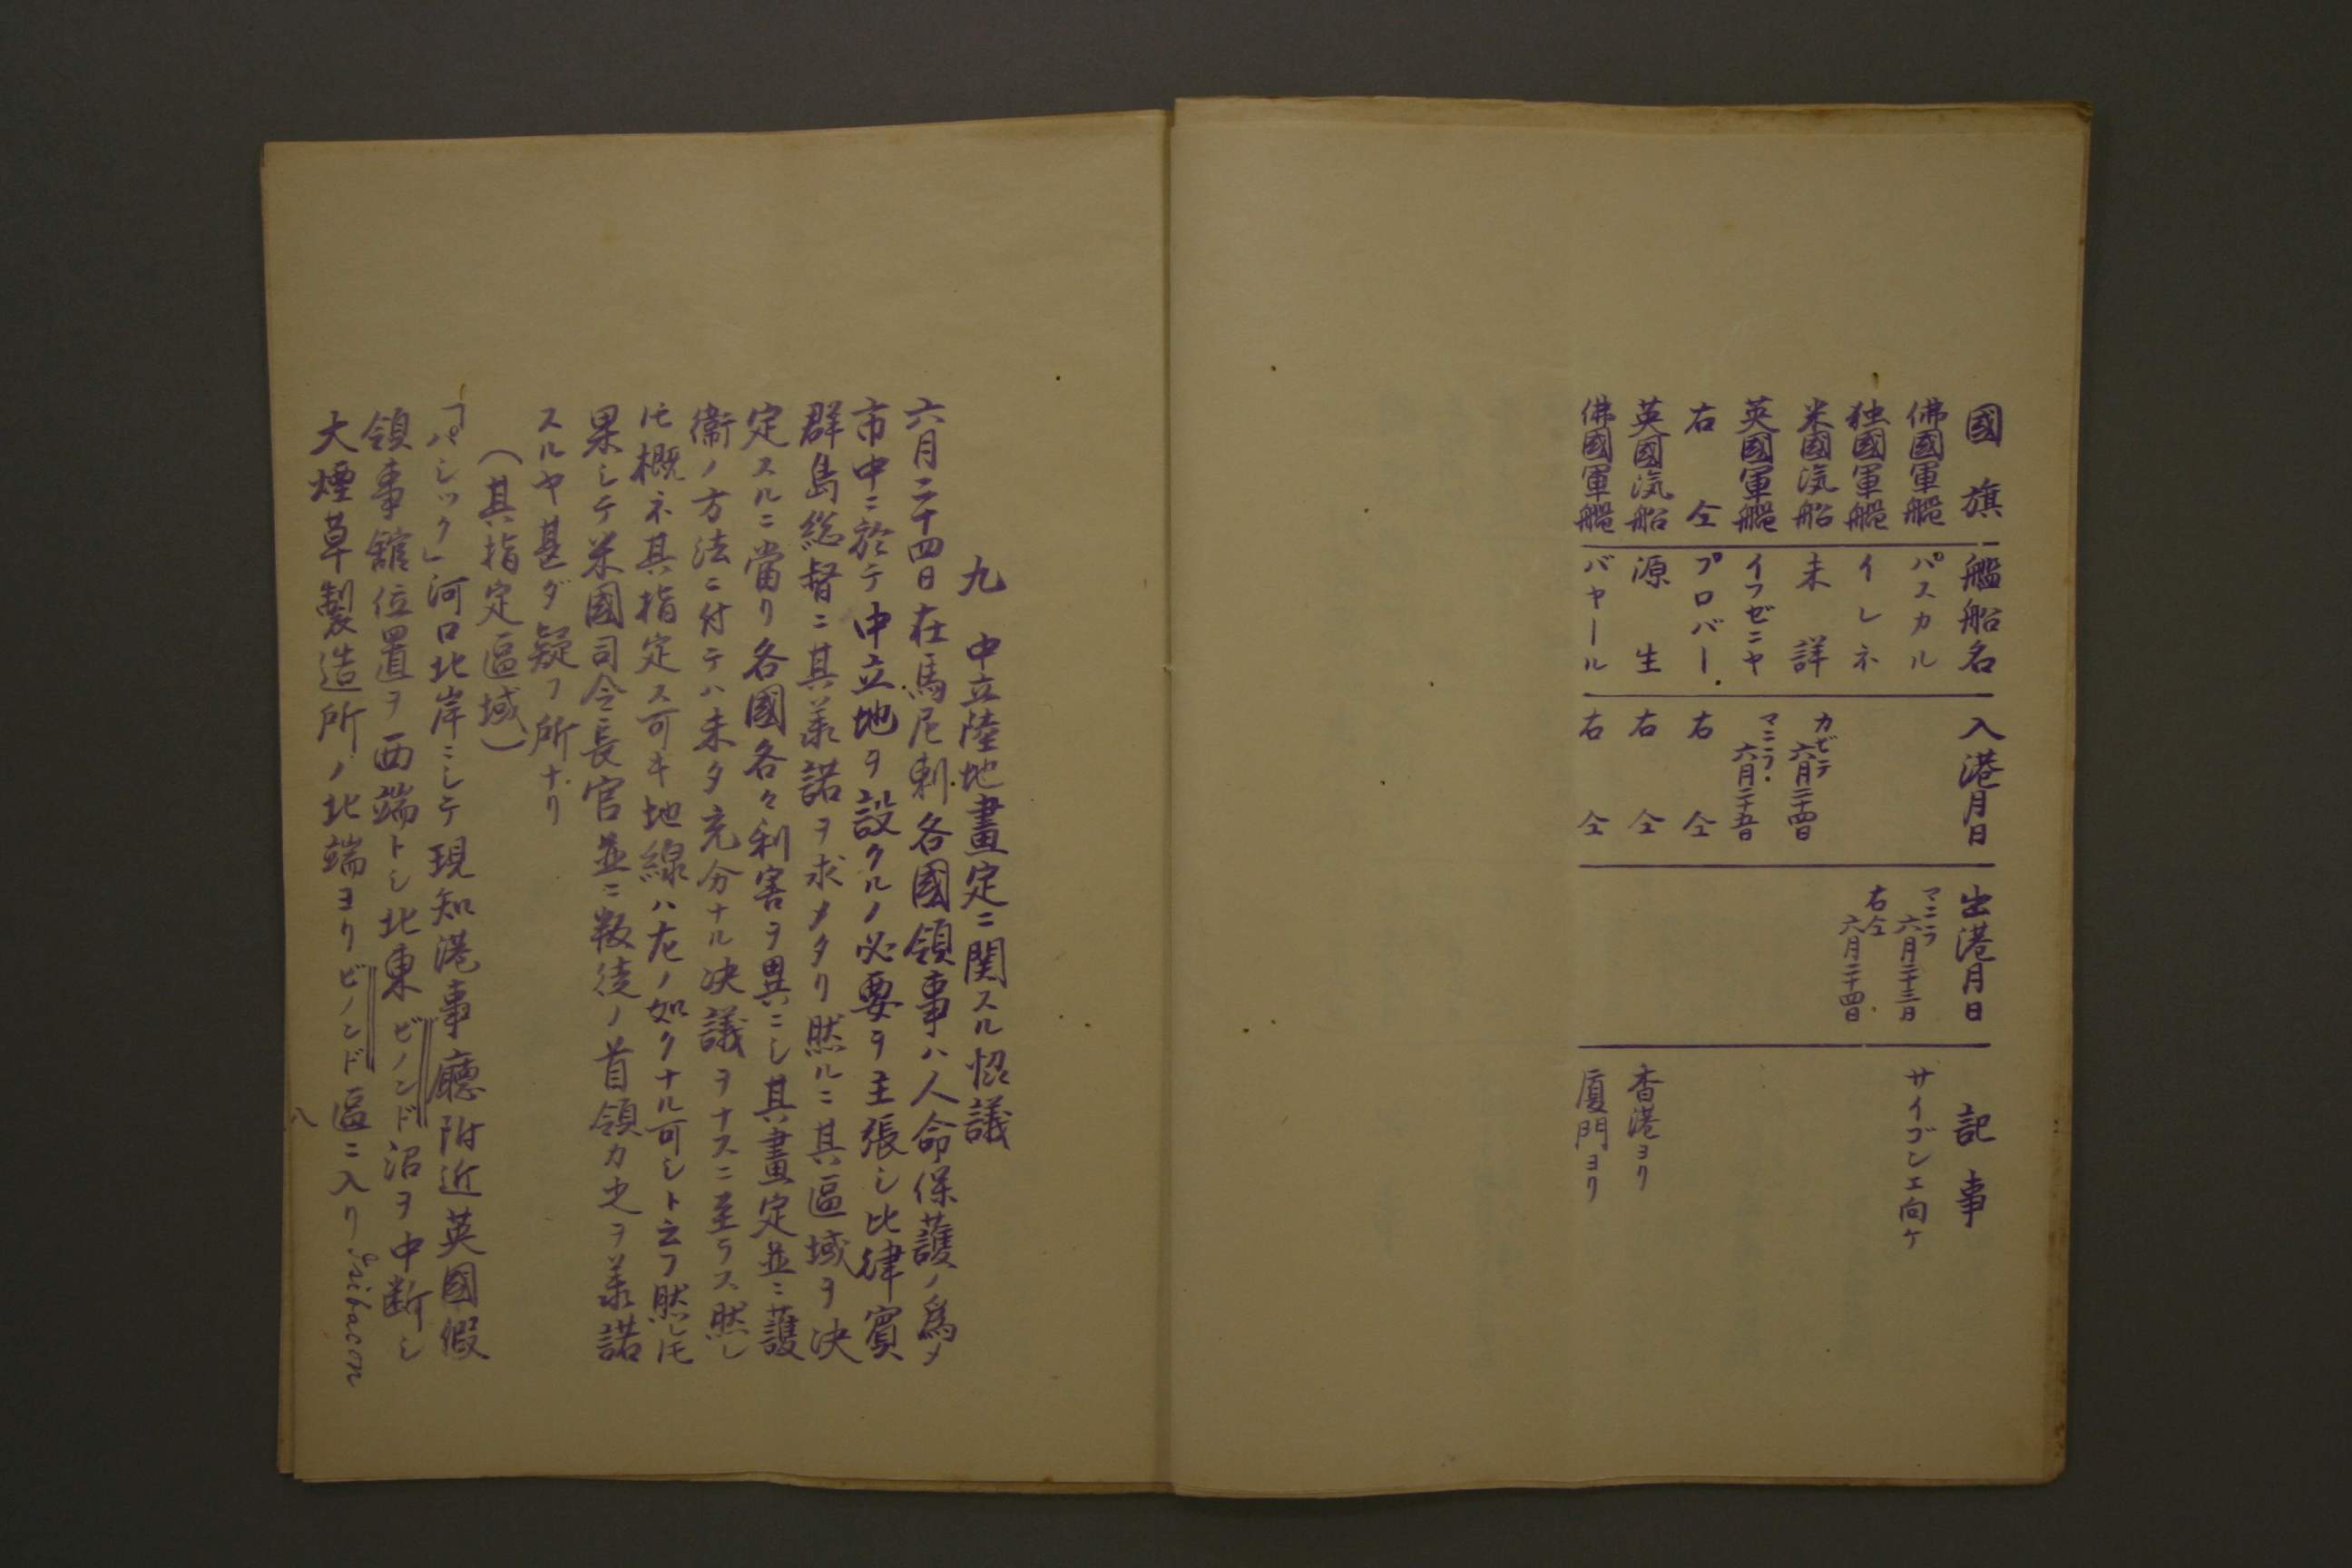 國旗 艦船名 入港月日 出港月日 記事
佛國軍艦 パスカル マニラ六月二十三日 サイゴンエ向ケ
独國軍艦 イレネ 右仝六月二十四日
米國汽船 未詳 カビテ六月二十四日
英國軍艦 イフゼニヤ マニラ六月二十五日
右仝 プロバー 右仝
英國汽船 源生 右仝 香港ヨリ
佛國軍艦 バヤール 右仝 厦門ヨリ
九 中立陸地畫定ニ関スル惚議
六月二十四日在馬尼剌各國領事ハ人命保護ノ爲メ
市中ニ於テ中立地ヲ設クルノ必要ヲ主張シ比律賓
群島総督ニ其羕諾ヲ求メタリ然ルニ其區域ヲ決
定スルニ當リ各國各々利害ヲ異ニシ其畫定並ニ護
衞ノ方法ニ付テハ未タ充分ナル决議ヲナスニ至ラス然レ
𪜈概ネ其指定ス可キ地線ハ左ノ如クナル可シト云フ然レ𪜈
果シテ米國司令長官並ニ叛徒ノ首領カ之ヲ羕諾
スルヤ甚ダ疑フ所ナリ
(其指定區域)
「パシック」河口北岸ニシテ現知港事廳附近英國假
領事舘位置ヲ西端トシ北東ビノンド沼ヲ中断シ
大煙草製造所ノ北端ヨリビノンド區ニ入リ Saibacon
八